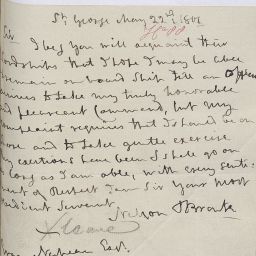 St. George May 22d. 1801
Sir
I beg you will acquaint their
Lordships that I hope I may be able
remain on board Ship till an Officer
arrives to take my truly honorable
and pleasant Command, but my
complaint requires that I should be on
shore and to take gentle exercise
my exertions have been I shall go on
long as I am able, with every senti-
ment of Respect I am Sir your most
obedient Servant
Nelson & Bronte
Nepean Esqr.